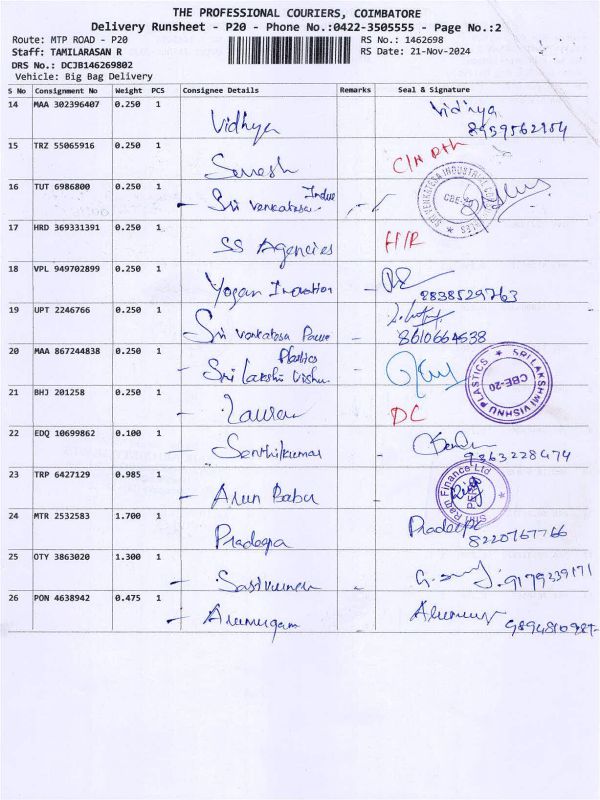 THE PROFESSIONAL COURIERS, COIMBATORE
Delivery Runsheet - P20 - Phone No.:0422-3505555 - Page No.:2
Route: MTP ROAD - P20 RS No.: 1462698
Staff: TAMILARASAN R RS Date: 21-Nov-2024
DRS No.: DCJB146269802
Vehicle: Big Bag Delivery
S No Consignment No Weight PCS Consignee Details Remarks Seal & Signature
14 MAA 302396407 0.250 1 Vidhya Vidhya
8959562154
15 TRZ 55065916 0.250 1 Suresh C/N
16 TUT 6986800 0.250 1 Sri Venkatesa
CBE-20
17 HRD 369331391 0.250 1 SS Agencies
18 VPL 949702899 0.250 1 Yogan
8838529763
19 UPT 2246766 0.250 1 Sri Venkatesa
8610664538
20 MAA 867244838 0.250 1 Plastics
Sri Lakshi Vishnu
SRI LAKSHMI VISHNU PLASTICS CBE-20
21 BHJ 201258 0.250 1 DC
22 EDQ 10699862 0.100 1 Senthilkumar
9363228474
23 TRP 6427129 0.985 1 Arun Babu
Ram Finance Ltd
24 MTR 2532583 1.700 1 Pradeepa Pradeepa
8220767766
25 OTY 3863020 1.300 1
9179239171
26 PON 4638942 0.475 1 Arumugam